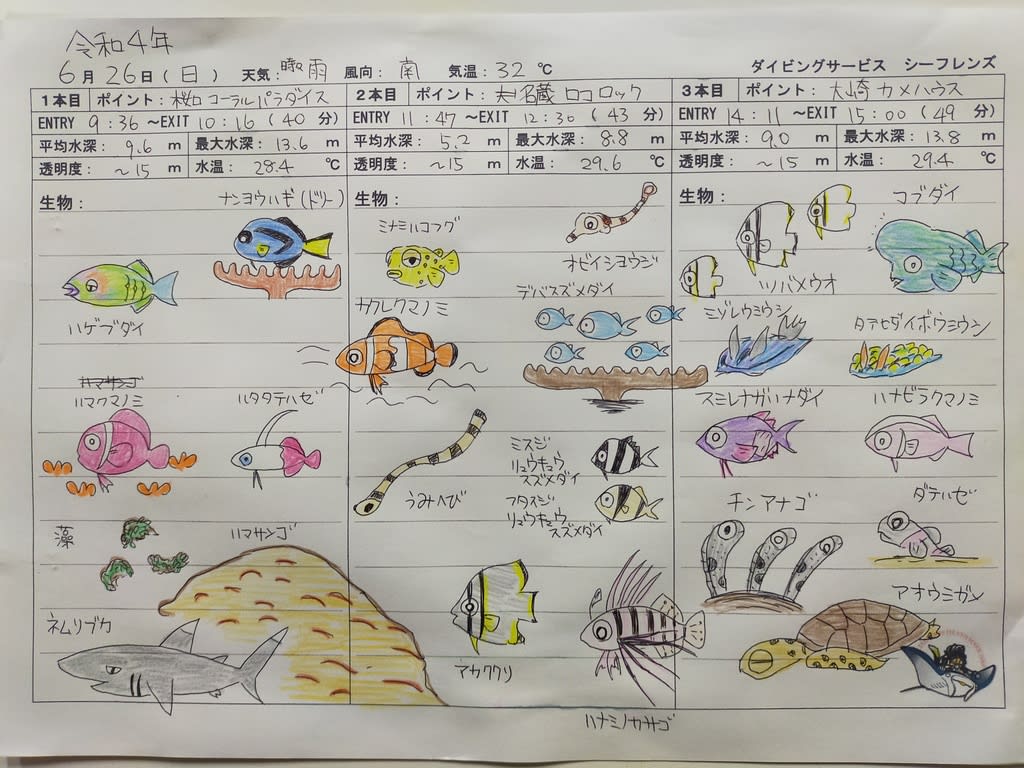 令和4年
6月 26日(日) 天気: 晴雨 風向: 南 気温: 32 ℃ ダイビングサービス シーフレンズ
1本目 ポイント: 桜口 コーラルパラダイス
ENTRY 9:36 ~EXIT 10:16 (40 分)
平均水深: 9.6 m 最大水深: 13.6 m
透明度: ~15 m 水温: 28.4 ℃
生物:
ナンヨウハギ(ドリー)
ハゲブダイ
ハマサンゴ
ハマクマノミ
ハタタテハゼ
藻
ハマサンゴ
ネムリブカ
2本目 ポイント: 名蔵 ロコロック
ENTRY 11:47 ~EXIT 12:30 (43 分)
平均水深: 5.2 m 最大水深: 8.8 m
透明度: ~15 m 水温: 29.6 ℃
生物:
ミナミハコフグ
オビイシヨウジ
デバスズメダイ
カクレクマノミ
うみへび
ミスジ
リュウキュウ
スズメダイ
フタスジ
リュウキュウ
スズメダイ
アカククリ
ハナミノカサゴ
3本目 ポイント: 大崎 カメハウス
ENTRY 14:11 ~EXIT 15:00 (49 分)
平均水深: 9.0 m 最大水深: 13.8 m
透明度: ~15 m 水温: 29.4 ℃
生物:
コブダイ
ツバメウオ
ミゾレウミウシ
タテヒダイボウミウシ
スミレナガハナダイ
ハナビラクマノミ
チンアナゴ
ダテハゼ
アオウミガメ